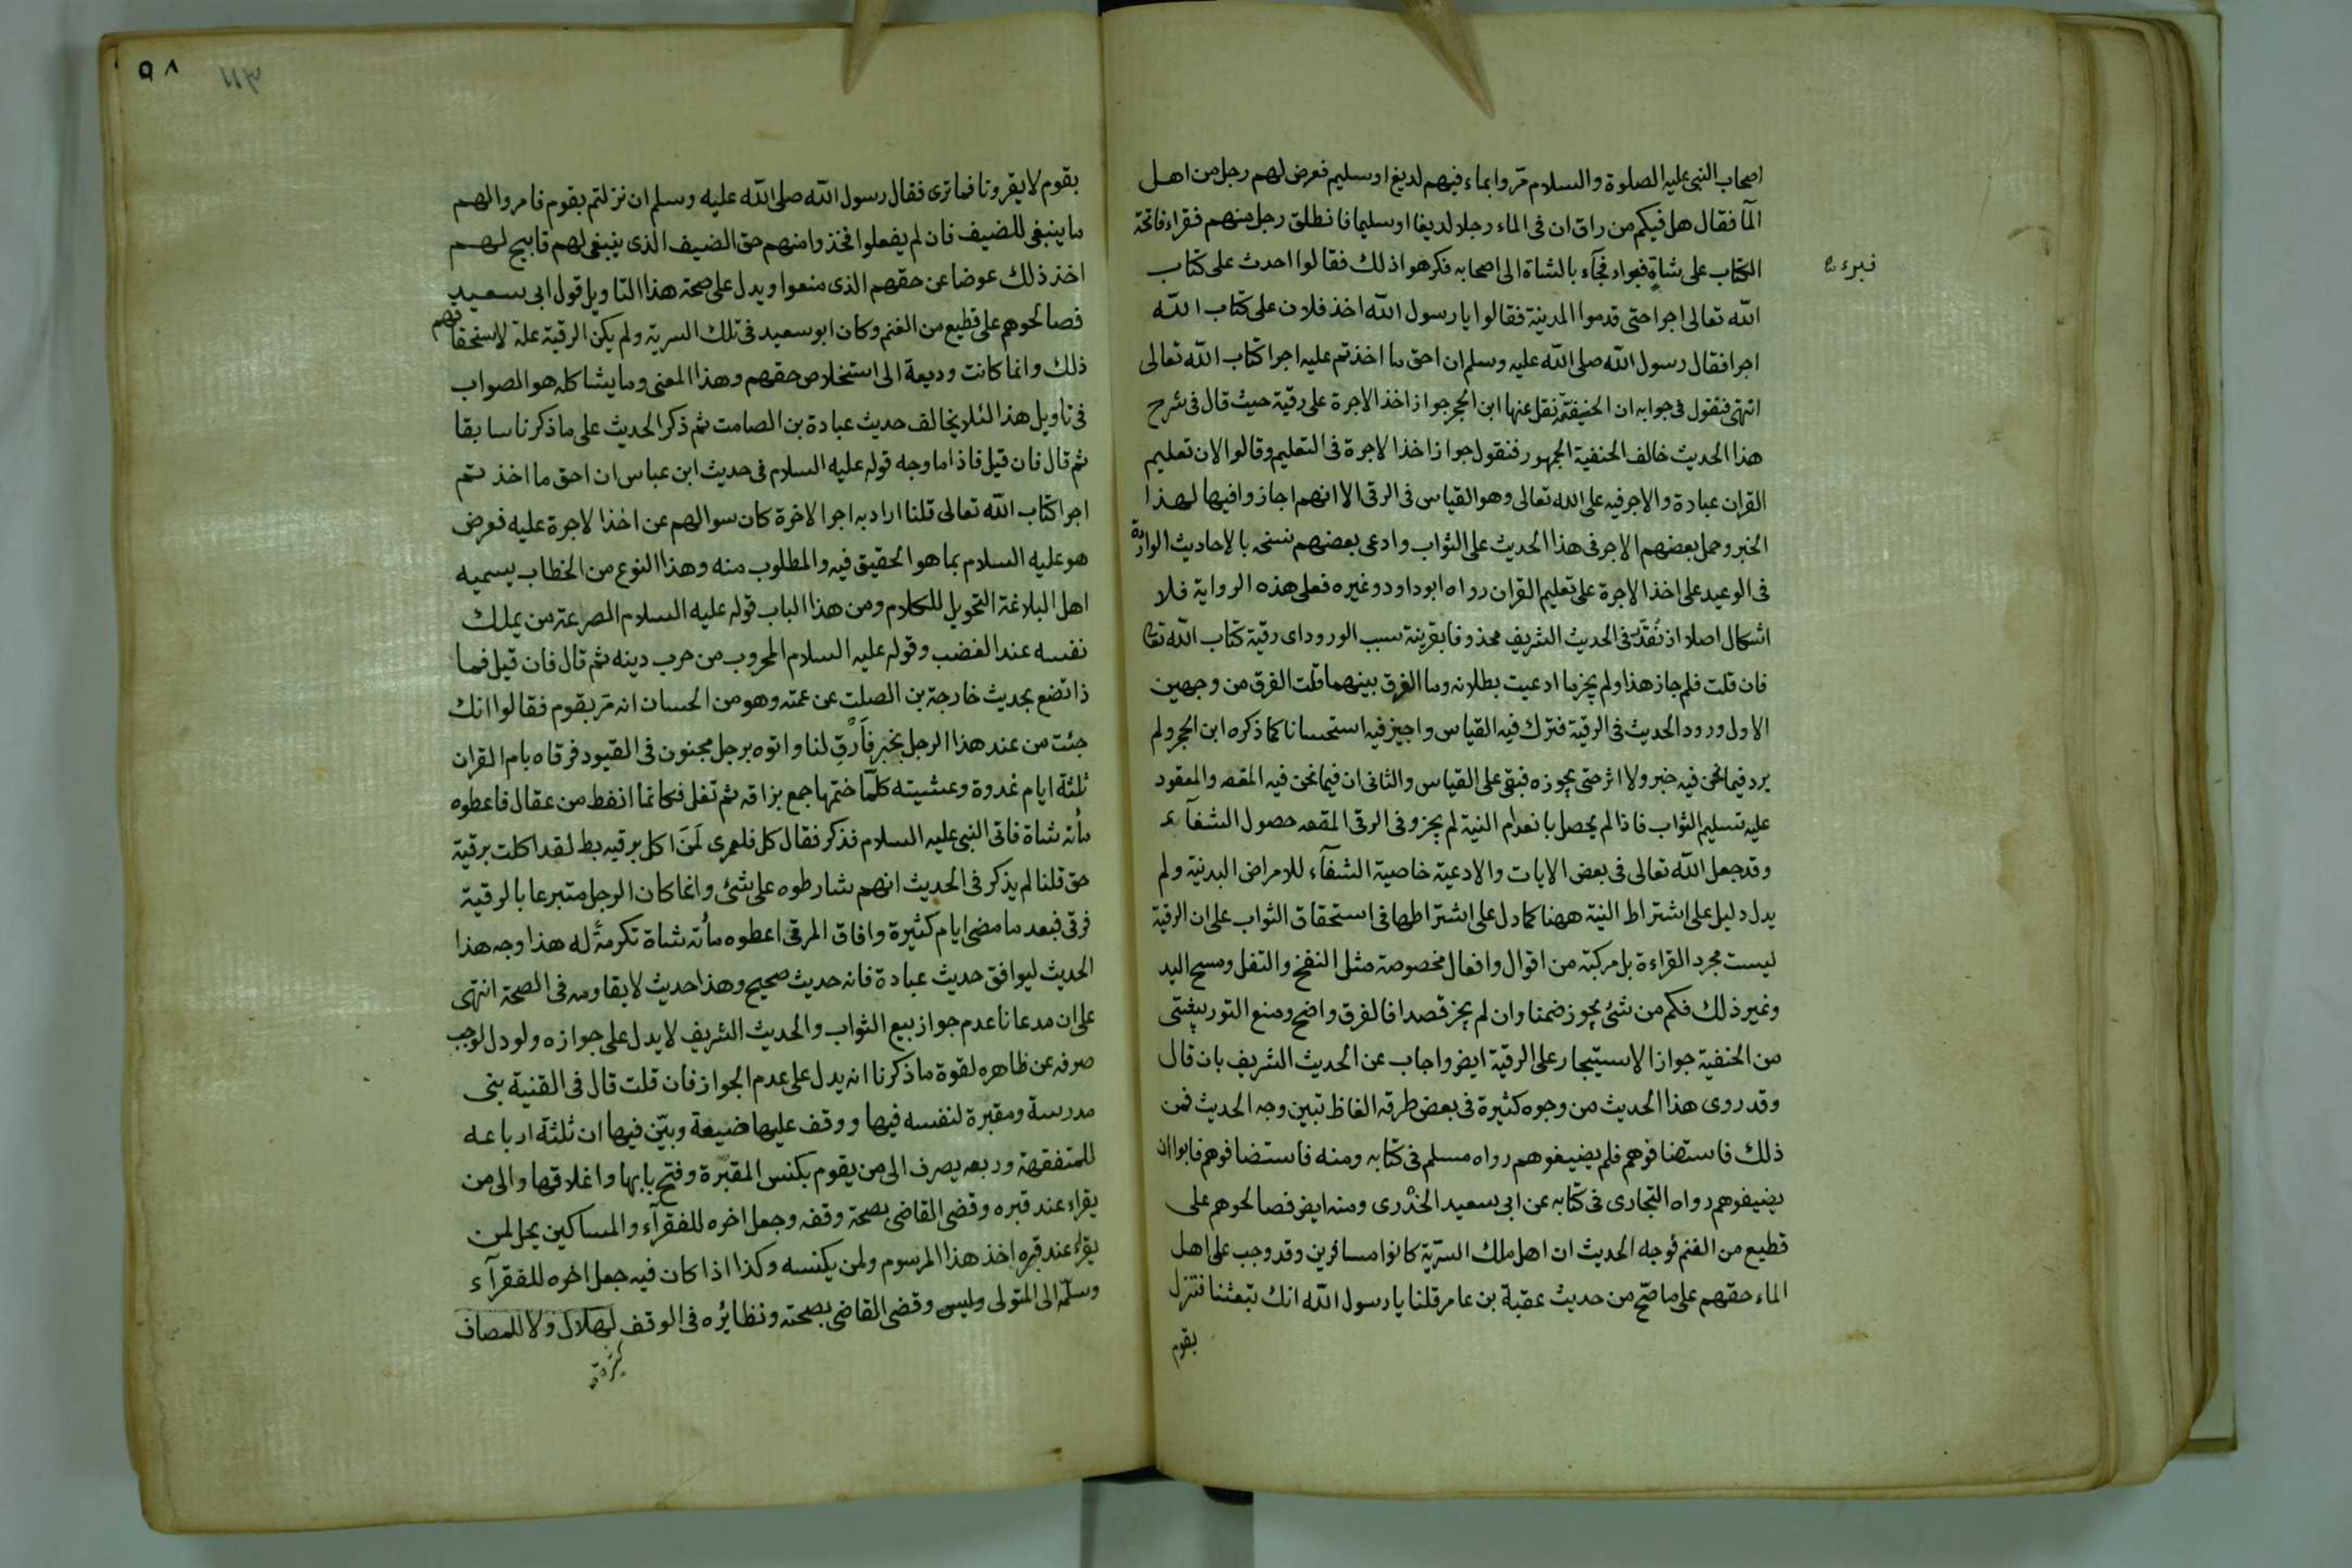 اصحاب النبى عليه الصلوة والسلام مرّوا بماء فيهم لديغ اوسليم فعرض لهم رجل من اهل
المآ فقال هل فيكم من راق ان فى الماء رجلا لديغا اوسليما فانطلق رجل منهم فقراء فاتحة
الكتاب على شاةٍ فبراء فجآء بالشاة الى اصحابه فكرهوا ذلك فقالوا اخذت على كتاب
فبرء
الله تعالى اجرا حتى قدموا المدينة فقالوا يا رسول الله اخذ فلان على كتاب الله
اجرا فقال رسول الله صلى الله عليه وسلم ان احق ما اخذتم عليه اجرا كتاب الله تعالى
انتهى فنقول فى جوابه ان الحنيفيّة نقل عنها ابن الحجر جواز اخذ الاجرة على رقية حيث قال فى شرح
هذا الحديث خالف الحنفية الجمهور فنقول جواز اخذ الاجرة فى التعليم وقالوا لان تعليم
القران عبادة والاجر فيه على الله تعالى وهو القياس فى الرقى الا انهم اجازوا فيها لهذا
الخبر وحمل بعضهم الاجر فى هذا الحديث على الثواب وادعى بعضهم نسخه بالاحاديث الواردة
فى الوعيد على اخذ الاجرة على تعليم القران رواه ابوداود وغيره فعلى هذه الرواية فلا
اشكال اصلا اذ نُقَدّر فى الحديث الشريف محذوفا بقرينة سبب الورود اى رقية كتاب الله تعا
فان قلت فلم جاز هذا ولم يجز ما ادعيت بطلانه وما الفرق بينهما قلت الفرق من وجهين
الاول ورود الحديث فى الرقية فترك فيه القياس واجيز فيه استحسانا كما ذكره ابن الحجر ولم
يرد فيما نحن فيه خبر ولا اثر حتى يجوزه فبقى على القياس والثانى ان فيما نحن فيه المقصـ والمعقود
عليه تسليم الثواب فاذا لم يحصل بانعدام النية لم يجز وفى الرقى المقصـ حصول الشفآء
وقد جعل الله تعالى فى بعض الايات والادعية خاصية الشفآء للامراض البدنية ولم
يدل دليل على اشتراط النية ههنا كما دل على اشتراطها فى استحقاق الثواب على ان الرقية
ليست مجرد القراءة بل مركبة من اقوال وافعال مخصوصة مثل النفخ والتفل ومسح اليد
وغير ذلك فكم من شئ يجوز ضمنا وان لم يجز قصدا فالفرق واضح ومنع التوربشتى
من الحنفية جواز الاستيجار على الرقية ايضـ واجاب عن الحديث الشريف بان قال
وقد روى هذا الحديث من وجوه كثيرة فى بعض طرقه الفاظ تبين وجه الحديث فمن
ذلك فاستضافوهم فلم يضيفوهم رواه مسلم فى كتابه ومنه فاستضافوهم فابوا ان
يضيفوهم رواه البخارى فى كتابه عن ابى سعيد الخدْرى ومنه ايضـ فصالحوهم على
قطيع من الغنم فوجه الحديث ان اهل ملك السرّية كانوا مسافرين وقد وجب على اهل
الماء حقهم على ما صّح من حديث عقبة بن عامر قلنا يا رسول الله انك تبعثنا فننزل
بقوم
٩٨
بقوم لا يقرونا فما ترى فقال رسول الله صلى الله عليه وسلم ان نزلتم بقوم فامروا لهم
ما ينبغى للضيف فان لم يفعلوا فخذوا منهم حق الضيف الذى ينبغى لهم فابيح لهم
اخذ ذلك عوضا عن حقهم الذى منعوا ويدل على صحة هذا التاويل قول ابى سعيد
فصالحوهم على قطيع من الغنم وكان ابو سعيد فى تلك السرية ولم يكن الرقية علة لاستحقاقهم
ذلك وانما كانت وديعة الى استخلاص حقهم وهذا المعنى وما يشاكله هو الصواب
فى تاويل هذا لئلا يخالف حديث عبادة بن الصامت ثم ذكر الحديث على ما ذكرنا سابقا
ثم قال فان قيل فاذا ما وجه قوله عليه السلام فى حديث ابن عباس ان احق ما اخذتم
اجرا كتاب الله تعالى قلنا اراد به اجر الاخرة كان سوالهم عن اخذ الاجرة عليه فعرض
هو عليه السلام بما هو الحقيق فيه والمطلوب منه وهذا النوع من الخطاب يسميه
اهل البلاغة التحويل للكلام ومن هذا الباب قوله عليه السلام الصرعة من يملك
نفسه عند الغضب وقوله عليه السلام المحروب من حرب دينه ثم قال فان قيل فما
ذا تضع بحديث خارجة بن الصلت عن عمته وهو من الحسان انه مّر بقوم فقالوا انك
جئت من عند هذا الرجل بخبر فاَرْقِ لنا واتوه برجل مجنون فى القيود فرقاه بام القران
ثلثة ايام غدوة وعشيته كلّما ختمها جمع بزاقه ثم تفل فكانما انفط من عقال فاعطوه
مأته شاة فاتى النبى عليه السلام فذكر فقال كل فلعمرى لَمَن اكل برقيه بط لقد اكلت برقية
حق قلنا لم يذكر فى الحديث انهم شارطوه على شئ وانما كان الرجل متبرعا بالرقية
فرقى فبعد ما مضى ايام كثيرة وافاق المرقى اعطوه مأته شاة تكرمةً له هذا وجه هذا
الحديث ليوافق حديث عبادة فانه حديث صحيح وهذا حديث لا يقاومه فى الصحة انتهى
على ان مدعانا عدم جواز بيع الثواب والحديث الشريف لا يدل على جوازه ولو دل لوجب
صرفه عن ظاهره لقوة ما ذكرنا انه يدل على عدم الجواز فان قلت قال فى القنية بنى
مدرسة ومقبرة لنفسه فيها ووقف عليها ضيعة وبيّن فيها ان ثلثة ارباعه
للمتفقهة وربعه يصرف الى من يقوم بكنس المقبرة وفتح بابها واغلاقها والى من
يقراء عند قبره وقضى القاضى بصحة وقفه وجعل اخره للفقرآء والمساكين يحل لمن
يقراء عند قبره اخذ هذا المرسوم ولمن يكنسه وكذا اذا كان فيه جعل اخره للفقرآء
وسلّمه الى المتولى وليس وقضى القاضى بصحته ونظائره فى الوقف لهلال ولا للمصاف